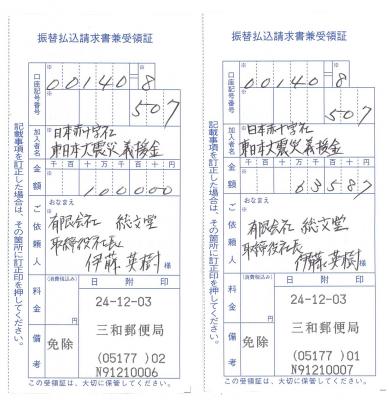 振替払込請求書兼受領証
口座記号番号
00140=8
507
加入者名
日本赤十字社
東日本大震災義援金
金額
千百十万千百十円
100000
ご依頼人
おなまえ
有限会社 総文堂
取締役社長
伊藤英樹 様
料金
(消費税込み)
円
日附印
24-12-03
三和郵便局
備考
免除
(05177)02
N91210006
記載事項を訂正した場合は、その箇所に訂正印を押してください。
この受領証は、大切に保管してください。
振替払込請求書兼受領証
口座記号番号
00140=8
507
加入者名
日本赤十字社
東日本大震災義援金
金額
千百十万千百十円
63587
ご依頼人
おなまえ
有限会社 総文堂
取締役社長
伊藤英樹 様
料金
(消費税込み)
円
日附印
24-12-03
三和郵便局
備考
免除
(05177)01
N91210007
記載事項を訂正した場合は、その箇所に訂正印を押してください。
この受領証は、大切に保管してください。